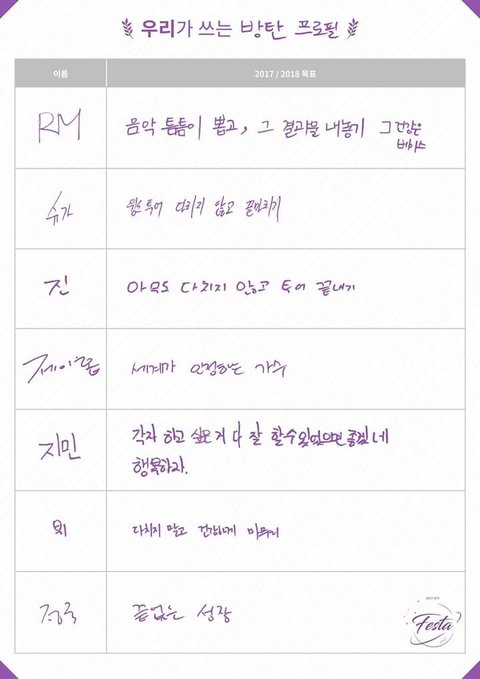 우리가 쓰는 방탄 프로필
이름 2017 / 2018 목표
RM 음악 틈틈이 뽑고, 그 결과물 내놓기 그 건강은
베이스
슈가 윙스 투어 다치지 않고 끝마치기
진 아무도 다치지 않고 투어 끝내기
제이홉 세계가 인정하는 가수
지민 각자 하고 싶은 거 다 잘 할 수 있었으면 좋겠네
행복하자.
뷔 다치지 말고 건강하게 마무리
정국 끝없는 성장
Festa